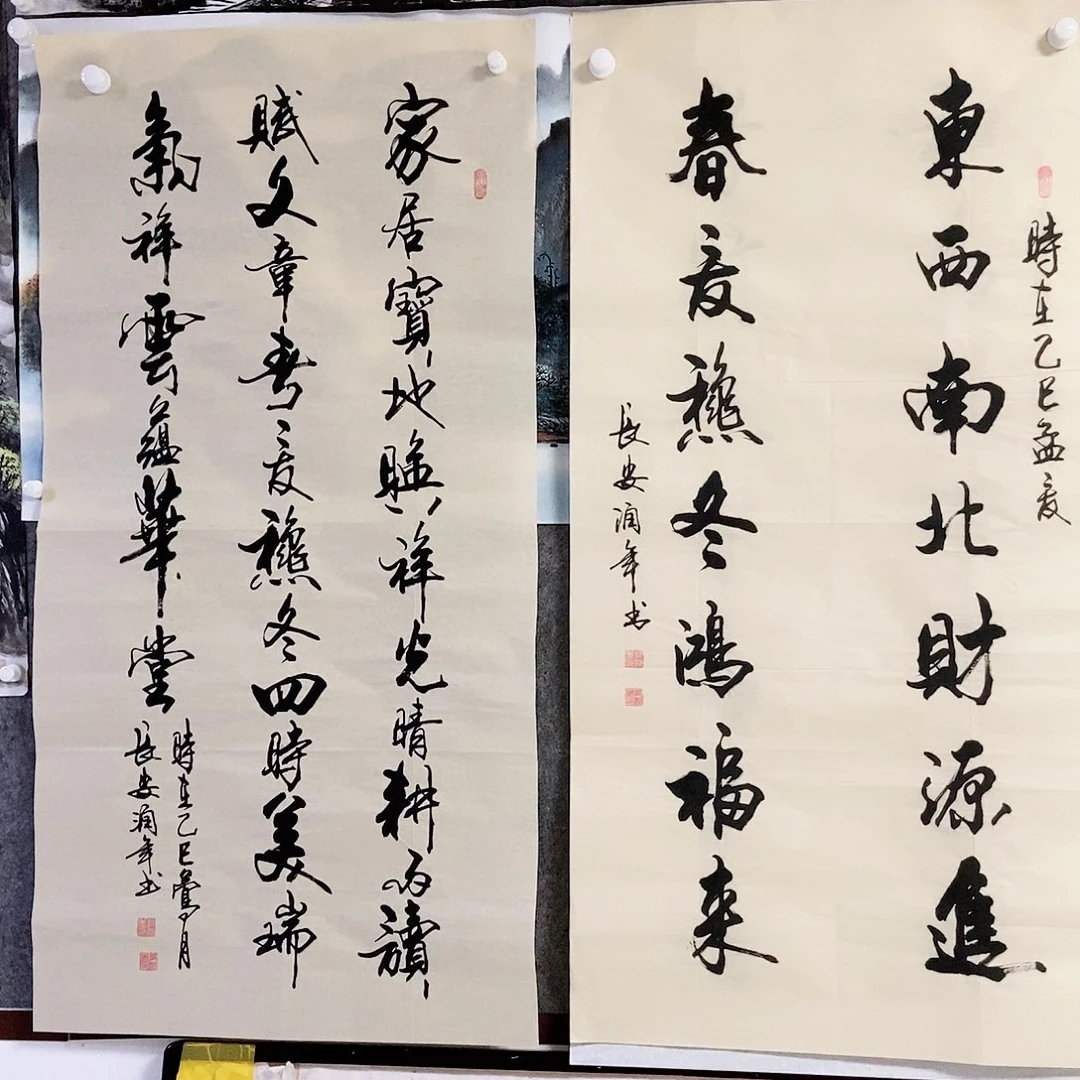 時在乙巳孟夏
東西南北財源進
春夏穐冬鴻福来
長安润年书
家居寶地祥光晴耕雨讀
賦文章春夏穐冬四時美瑞
氣祥雲蘊華堂
時在乙巳月
長安润年书